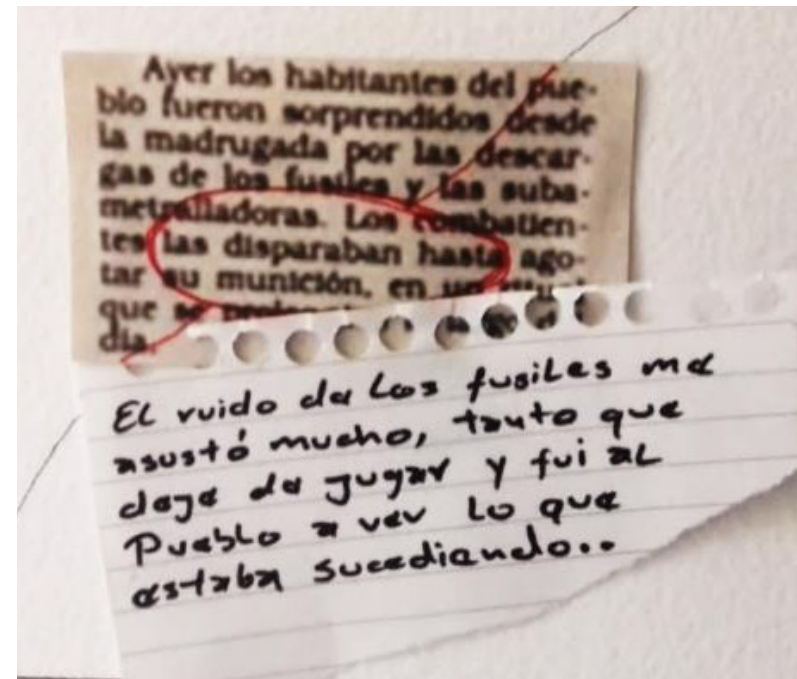 Ayer los habitantes del pue-
blo fueron sorprendidos desde
la madrugada por las descar-
gas de los fusiles y las suba-
metralladoras. Los combatien-
tes las disparaban hasta ago-
tar su munición, en un
que se
día.
El ruido de los fusiles me
asustó mucho, tanto que
deje de jugar y fui al
Pueblo a ver lo que
estaba sucediendo..